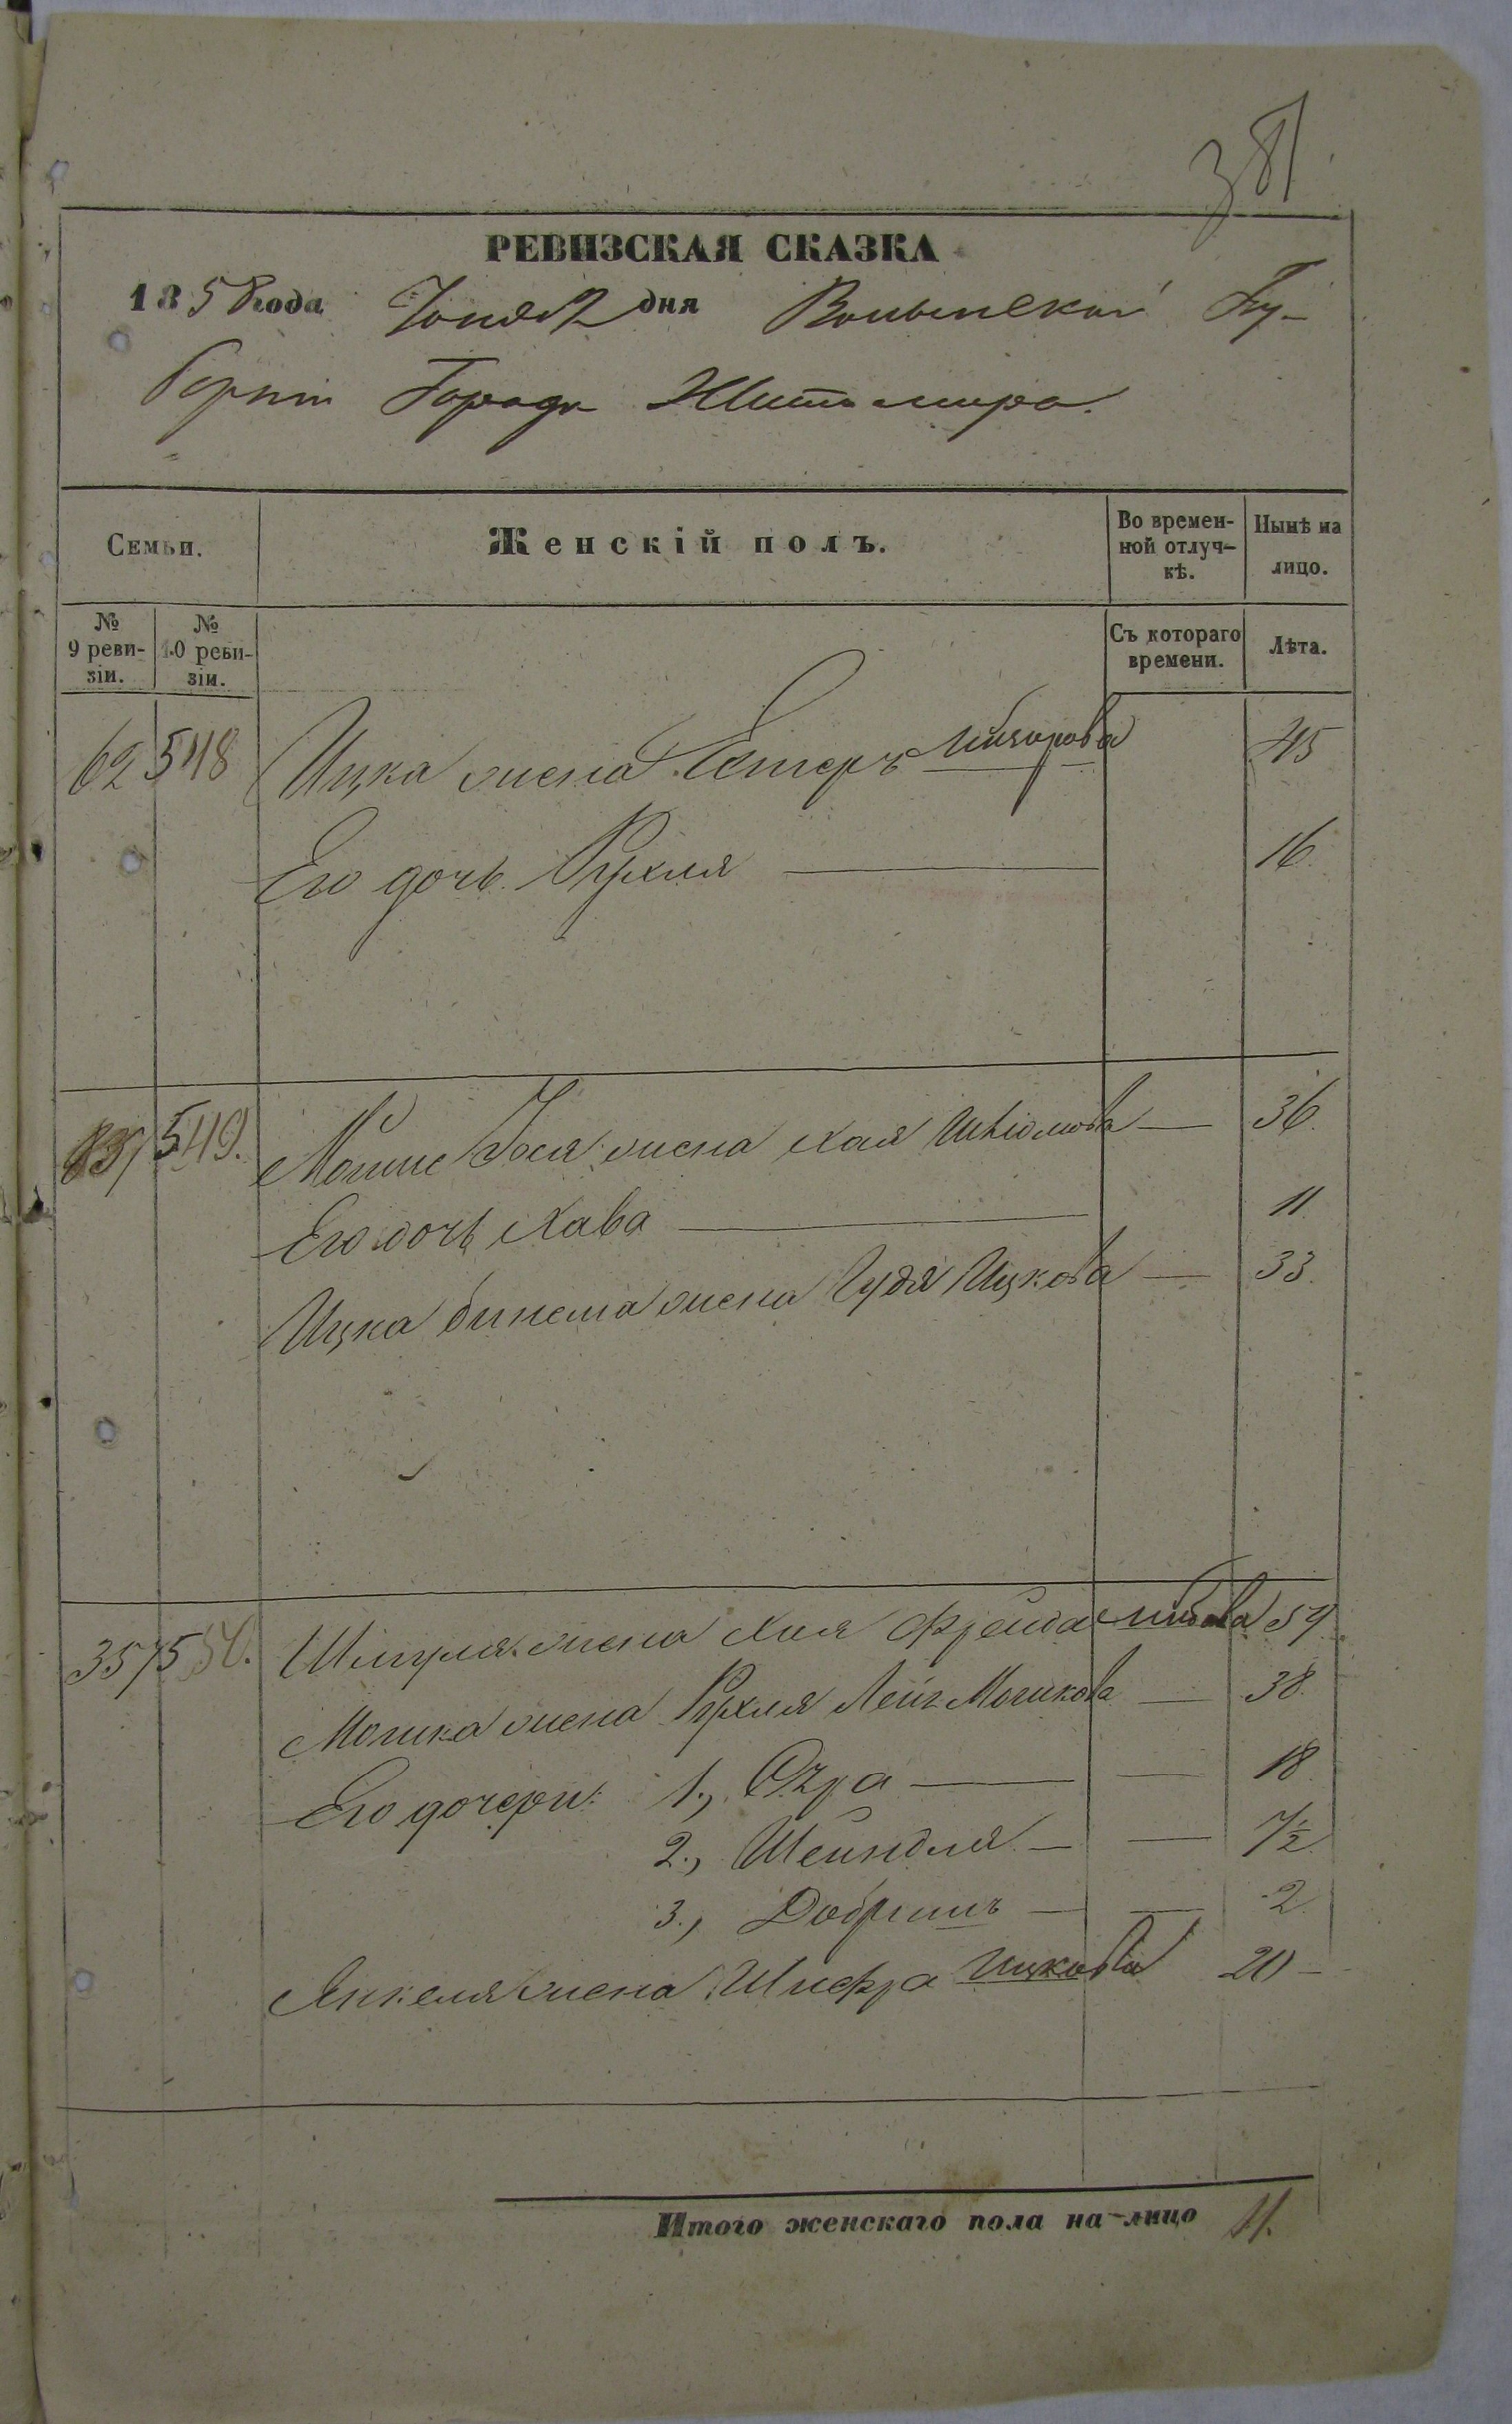 381
РЕВИЗСКАЯ СКАЗКА
1858 года Іюня 2 дня Волынской Гу-
берніи Города Житомира.
Семьи.
Женскій полъ.
Во времен-
ной отлуч-
кѣ.
Нынѣ на
лицо.
№
9 реви-
зіи.
№
10 реви-
зіи.
Съ котораго
времени.
Лѣта.
62 548 Ицка жена Естеръ 45
Его дочь Рухля 16
549. Мошко Іося жена Хая 36.
Его дочь Хава 11
Ицка жена Гудя Ицкова 33.
357 550. Шмуля жена Хая Фрейда
Мошка жена Рухля Лея Мошкова 38.
Его дочери: 1., 18
2., Шейндля 7½
3., Добришъ 2
Янкеля жена Шифра Ицкова 20
Итого женскаго пола на-лицо 11.